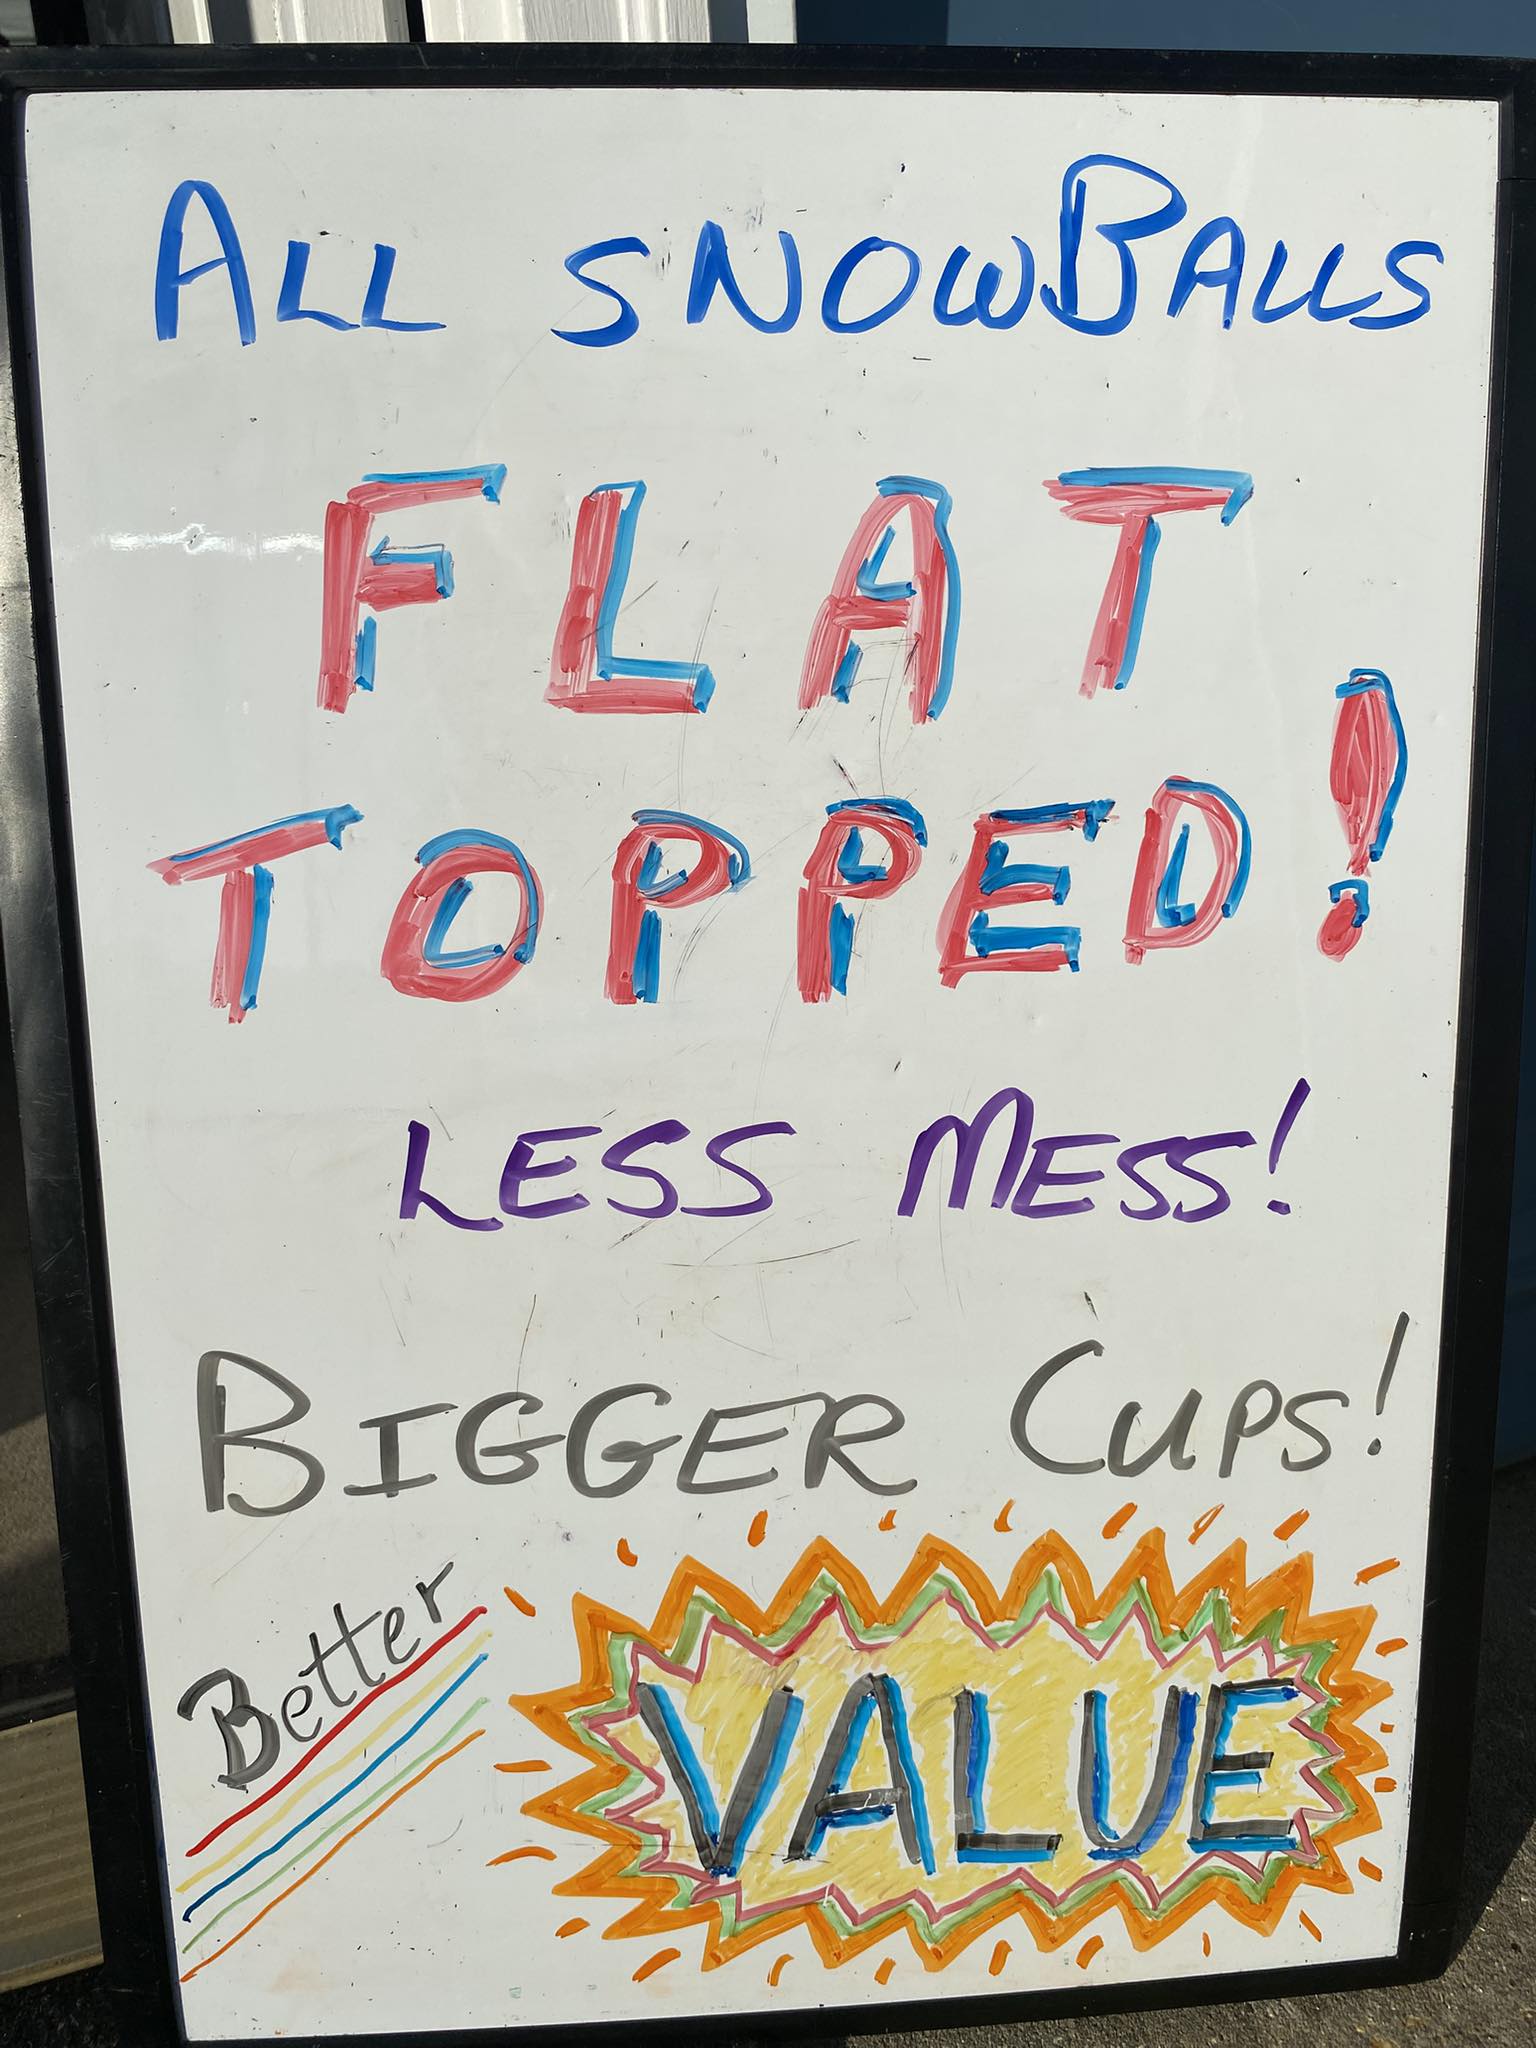 ALL SNOWBALLS
FLAT
TOPPED!
LESS MESS!
BIGGER CUPS!
Better
VALUE